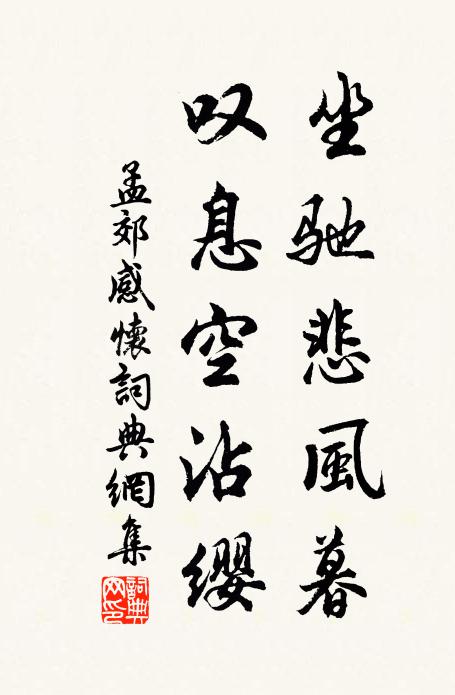 坐驰悲風暮
叹息空沾缨
孟郊感懷詞典網集
詞典网印